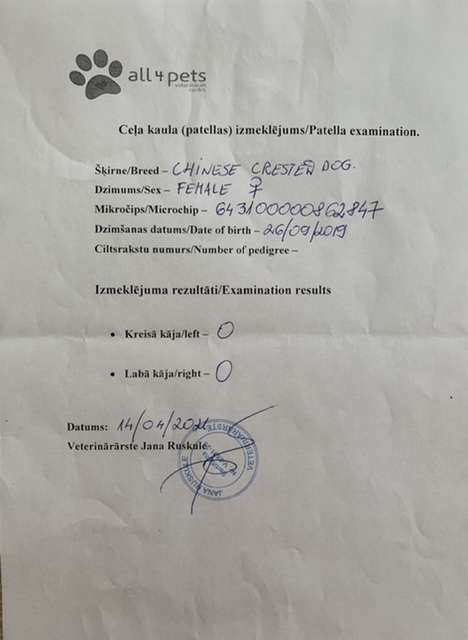 all 4 pets
veterinārais centrs
Ceļa kaula (patellas) izmeklējums/Patella examination.
Šķirne/Breed – CHINESE CRESTED DOG.
Dzimums/Sex – FEMALE ♀
Mikročips/Microchip – 643100000862847
Dzimšanas datums/Date of birth – 26/09/2019
Ciltsrakstu numurs/Number of pedigree –
Izmeklējuma rezultāti/Examination results
• Kreisā kāja/left – 0
• Labā kāja/right – 0
Datums: 14/04/2021
Veterinārārste Jana Ruskule
VETERINĀRĀRSTE
JANA RUSKULE